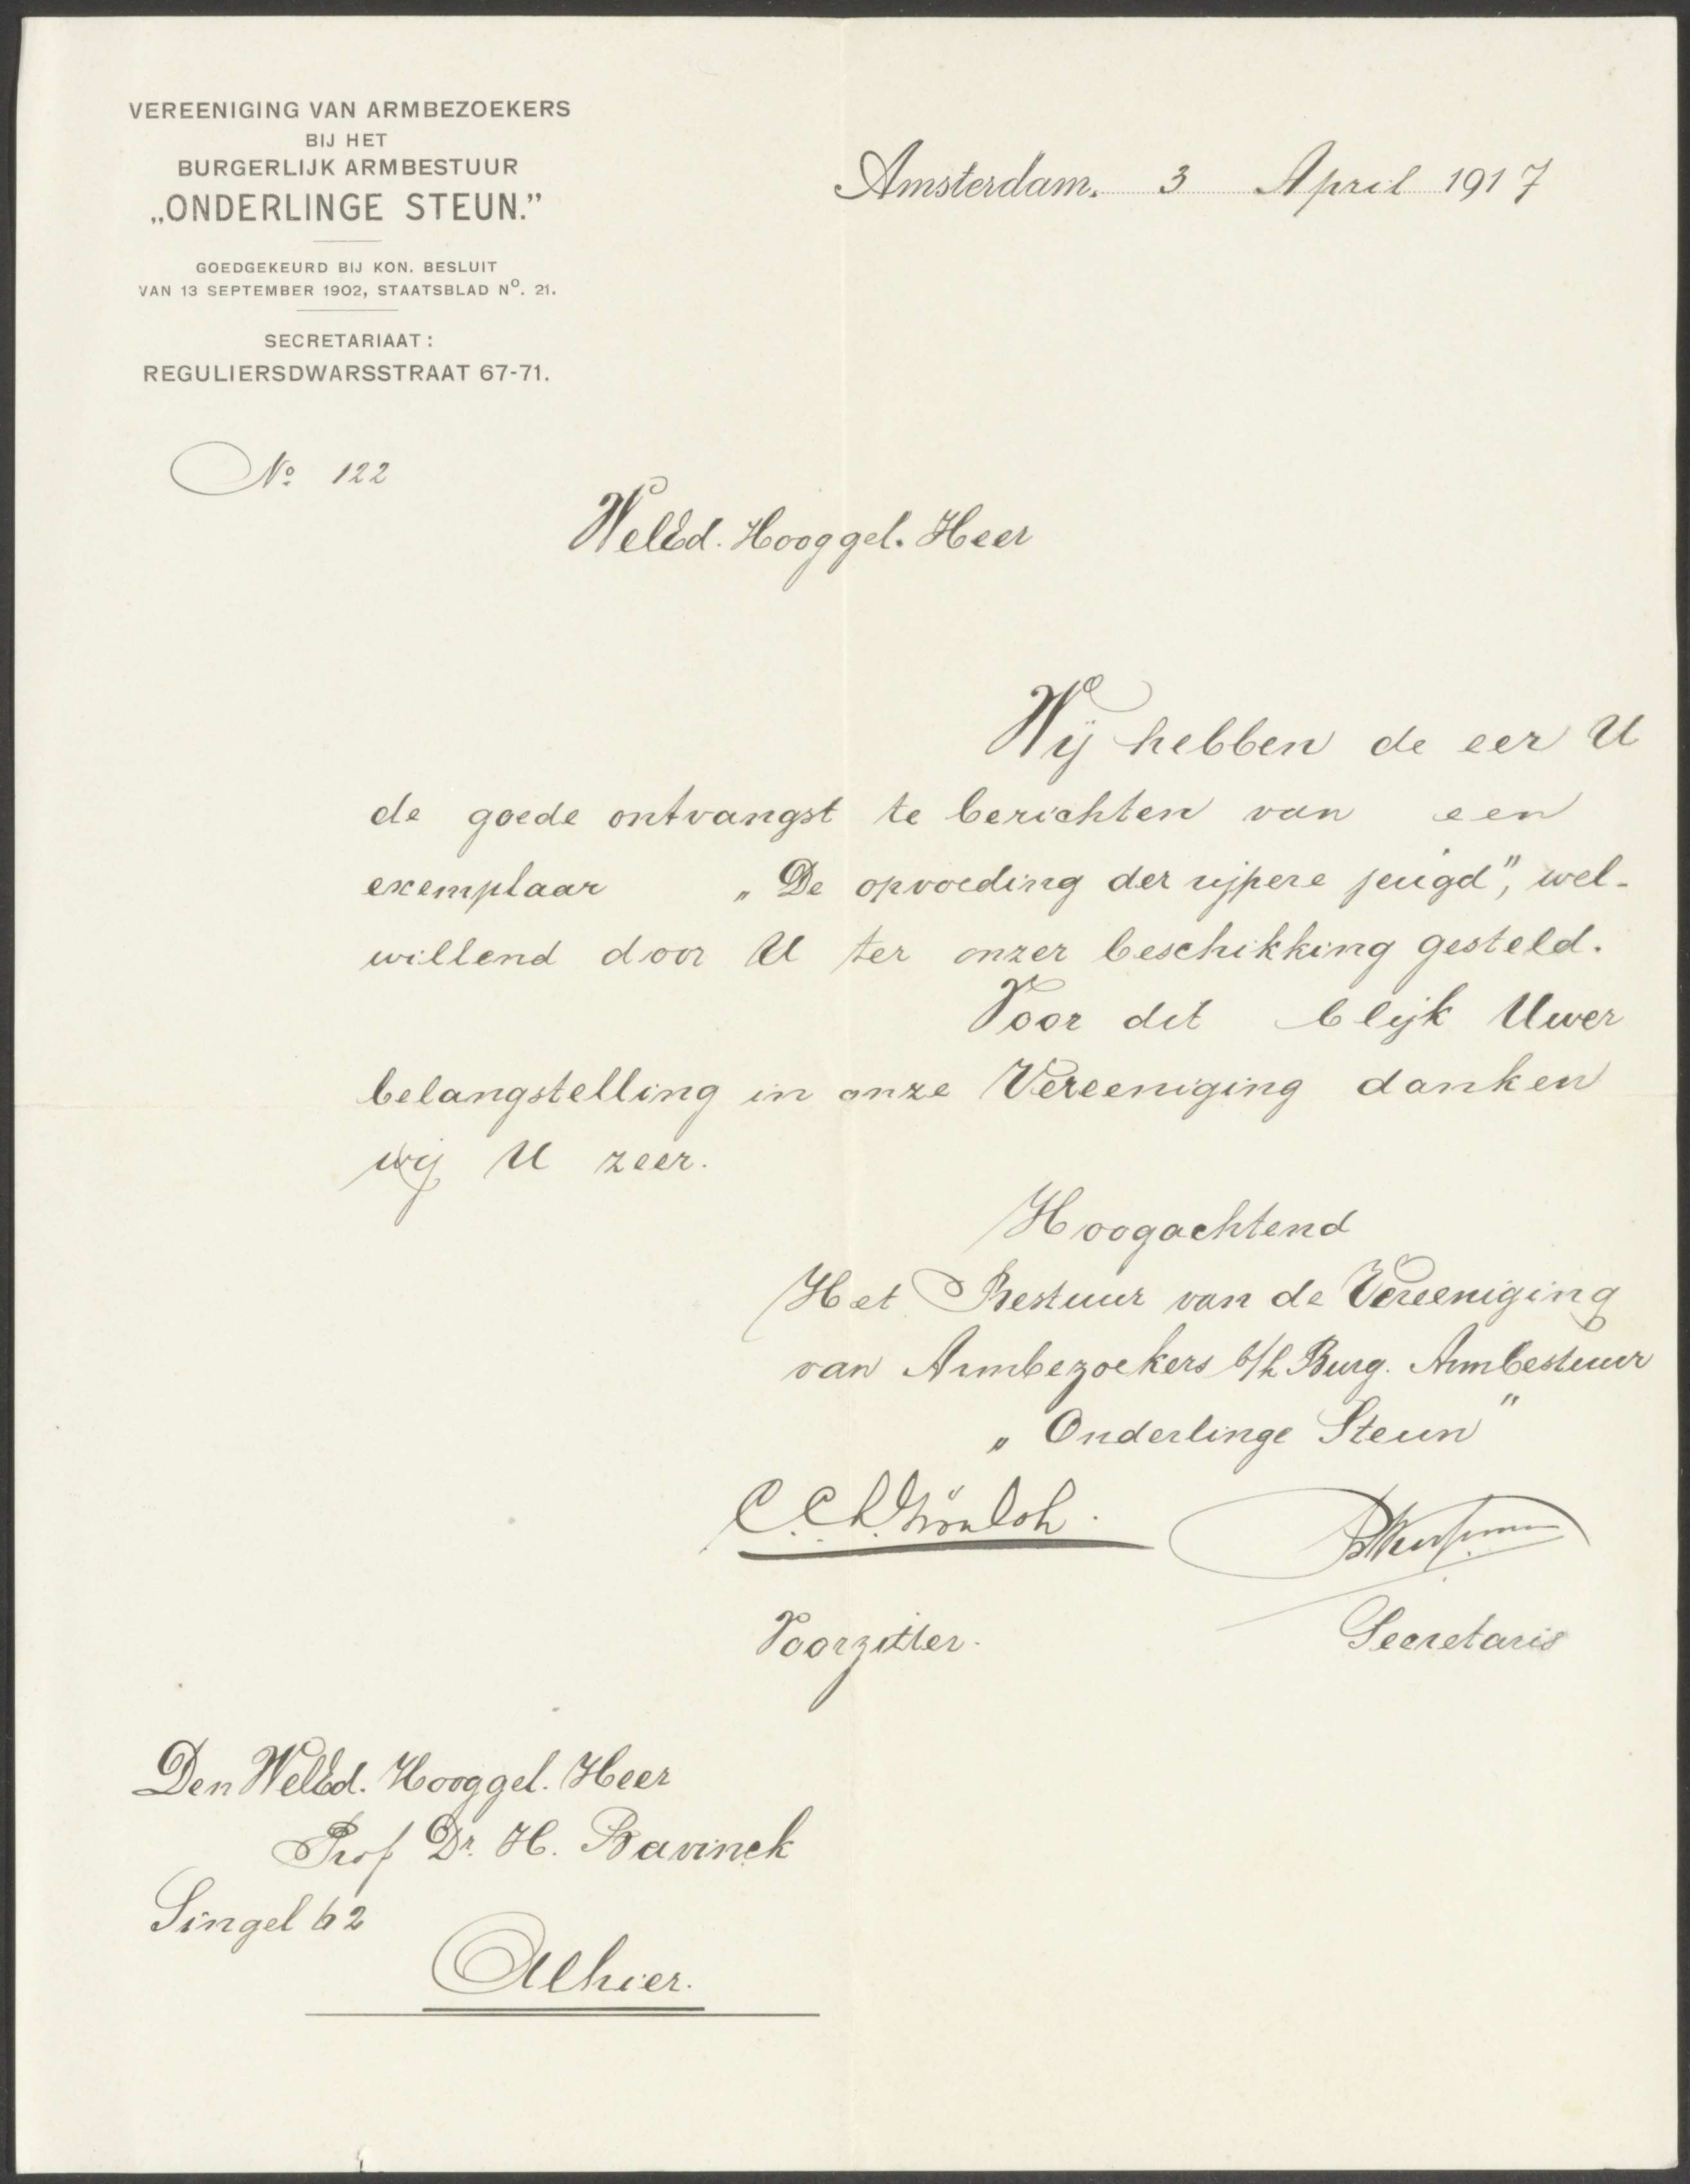 VEREENIGING VAN ARMBEZOEKERS
BIJ HET
BURGERLIJK ARMBESTUUR
„ONDERLINGE STEUN.”
GOEDGEKEURD BIJ KON. BESLUIT
VAN 13 SEPTEMBER 1902, STAATSBLAD Nº. 21.
SECRETARIAAT:
REGULIERSDWARSSTRAAT 67-71.
Amsterdam. 3 April 1917
Nº 122
WelEd. Hooggel. Heer
Wij hebben de eer U
de goede ontvangst te berichten van een
exemplaar „De opvoeding der rijpere jeugd”, wel-
willend door U ter onzer beschikking gesteld.
Voor dit blijk Uwer
belangstelling in onze Vereeniging danken
wij U zeer.
Hoogachtend
Het Bestuur van de Vereeniging
van Armbezoekers b/h Burg. Armbestuur
„Onderlinge Steun”
Voorzitter.
Secretaris
Den WelEd. Hooggel. Heer
Prof Dr. H. Bavinck
Singel 62
Alhier.